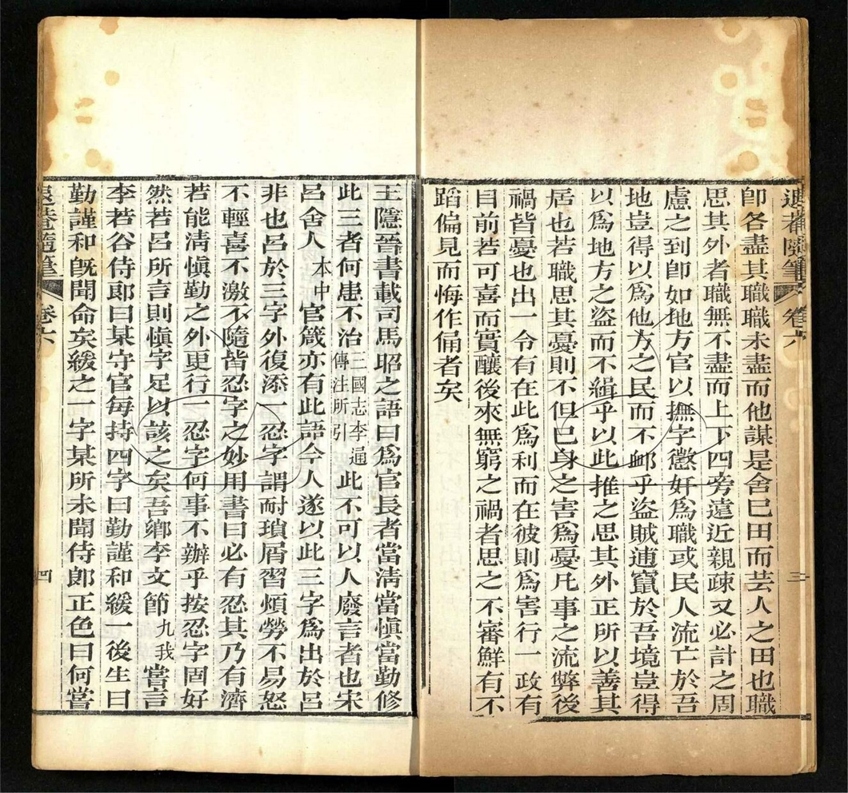 退菴隨筆 卷六 三
卽各盡其職職未盡而他謀是舍己田而芸人之田也職
思其外者職無不盡而上下四旁遠近親疎又必計之周
慮之到卽如地方官以撫字懲奸爲職或民人流亡於吾
地豈得以爲他方之民而不䘏乎盜賊逋竄於吾境豈得
以爲地方之盜而不緝乎以此推之思其外正所以善其
居也若職思其憂則不但已身之害爲憂凡事之流弊後
禍皆憂也出一令有在此爲利而在彼則爲害行一政有
目前若可喜而實釀後來無窮之禍者思之不審鮮有不
蹈偏見而悔作俑者矣
王隱晉書載司馬昭之語曰爲官長者當淸當愼當勤修
此三者何患不治三國志李通傳注所引此不可以人廢言者也宋
呂舍人本中官箴亦有此語今人遂以此三字爲出於呂
非也呂於三字外復添一忍字謂耐瑣屑習煩勞不易怒
不輕喜不激不隨皆忍字之妙用書曰必有忍其乃有濟
若能淸愼勤之外更行一忍字何事不辦乎按忍字固好
然若呂所言則愼字足以該之矣吾鄕李文節九我嘗言
李若谷侍郞曰某守官每持四字曰勤謹和緩一後生曰
勤謹和旣聞命矣緩之一字某所未聞侍郞正色曰何嘗
退菴隨筆 卷六 四